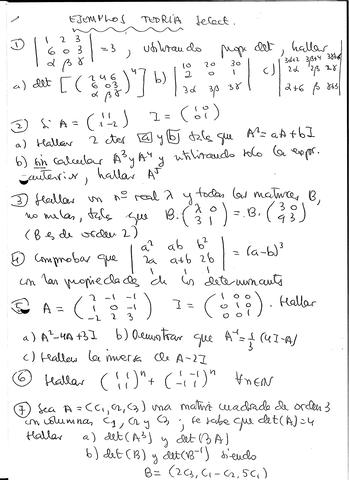 EJEMPLOS TEORÍA Select.
① | 1 2 3 |
| 6 0 3 | = 3, utilizando prop. det, hallar
| α β γ |
a) det [ ( 2 4 6 ; 6 0 3 ; α β γ )⁴ ] b) | 10 20 30 ; 2 0 1 ; 3α 3β 3γ | c)
② Si A = ( 1 1 ; 1 -2 ) I = ( 1 0 ; 0 1 )
a) Hallar 2 ctes a y b tales que A² = aA + bI
b) sin calcular A³ y A⁴ y utilizando solo la expr.
anterior, hallar A⁵
③ Hallar un nº real λ y todas las matrices B,
no nulas, tales que B·( λ 0 ; 3 1 ) = B·( 3 0 ; 9 3 )
(B es de orden 2)
④ Comprobar que | a² ab b² ; 2a a+b 2b ; 1 1 1 | = (a-b)³
con las propiedades de los determinantes
⑤ A = ( 2 -1 -1 ; 1 0 -1 ; -2 2 3 ) I = ( 1 0 0 ; 0 1 0 ; 0 0 1 ). Hallar
a) A² - 4A + 3I b) Demostrar que A⁻¹ = 1/3 (4I - A)
c) Hallar la inversa de A - 2I
⑥ Hallar ( 1 1 ; 1 1 )ⁿ + ( 1 -1 ; -1 1 )ⁿ ∀n∈N
⑦ Sea A = (C1, C2, C3) una matriz cuadrada de orden 3
con columnas C1, C2 y C3; se sabe que det(A) = 4
Hallar a) det(A³) y det(3A)
b) det(B) y det(B⁻¹) siendo
B = (2C3, C1 - C2, 5C1)